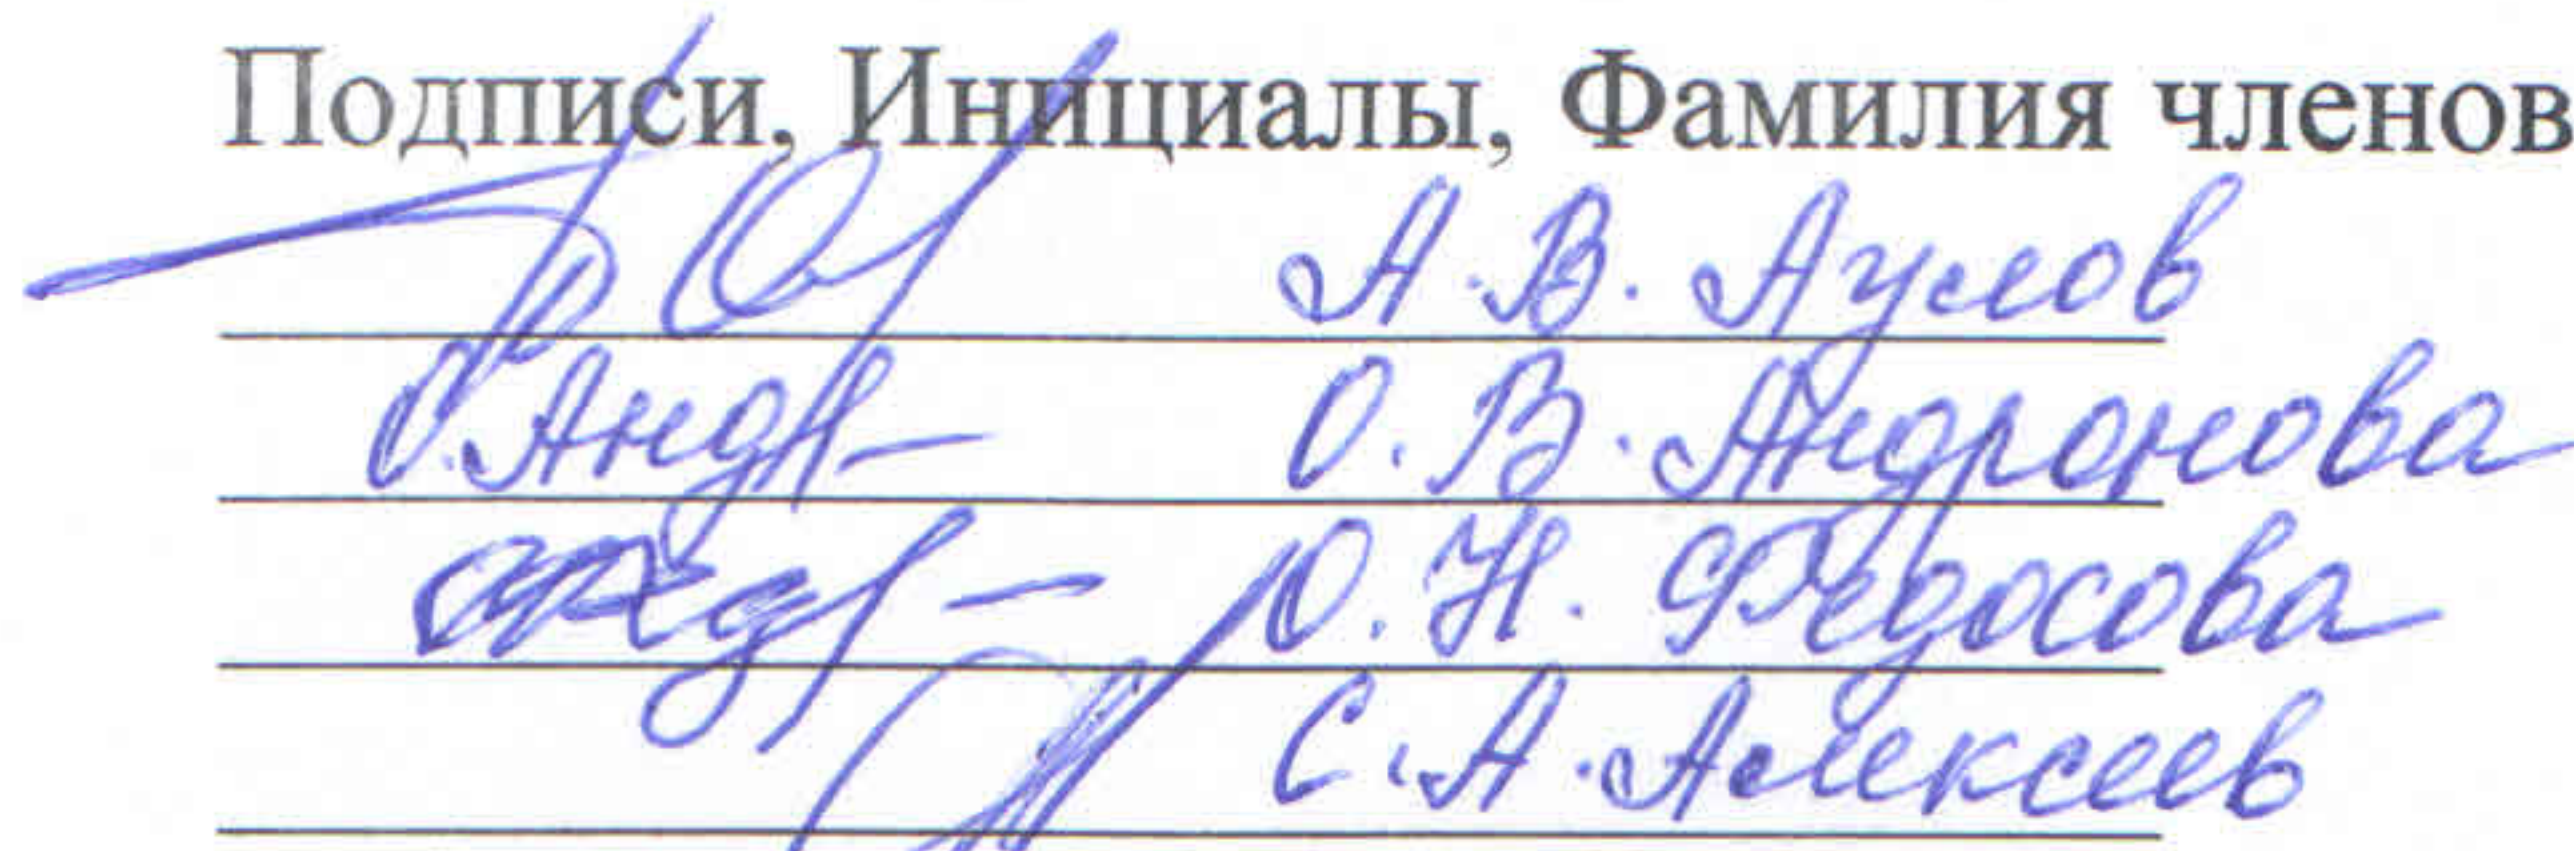 Подписи, Инициалы, Фамилия членов
А.В. Аулов
О.Анд О.В. Андронова
О.Н. Федосова
С.А. Алексеев